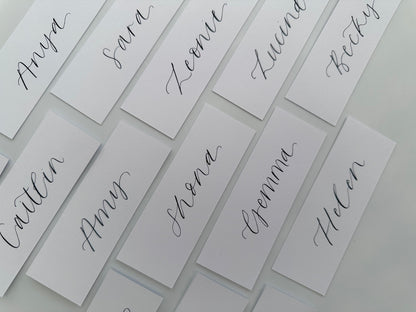 Anya
Sara
Leonie
Becky
Caitlin
Amy
Shona
Gemma
Helen